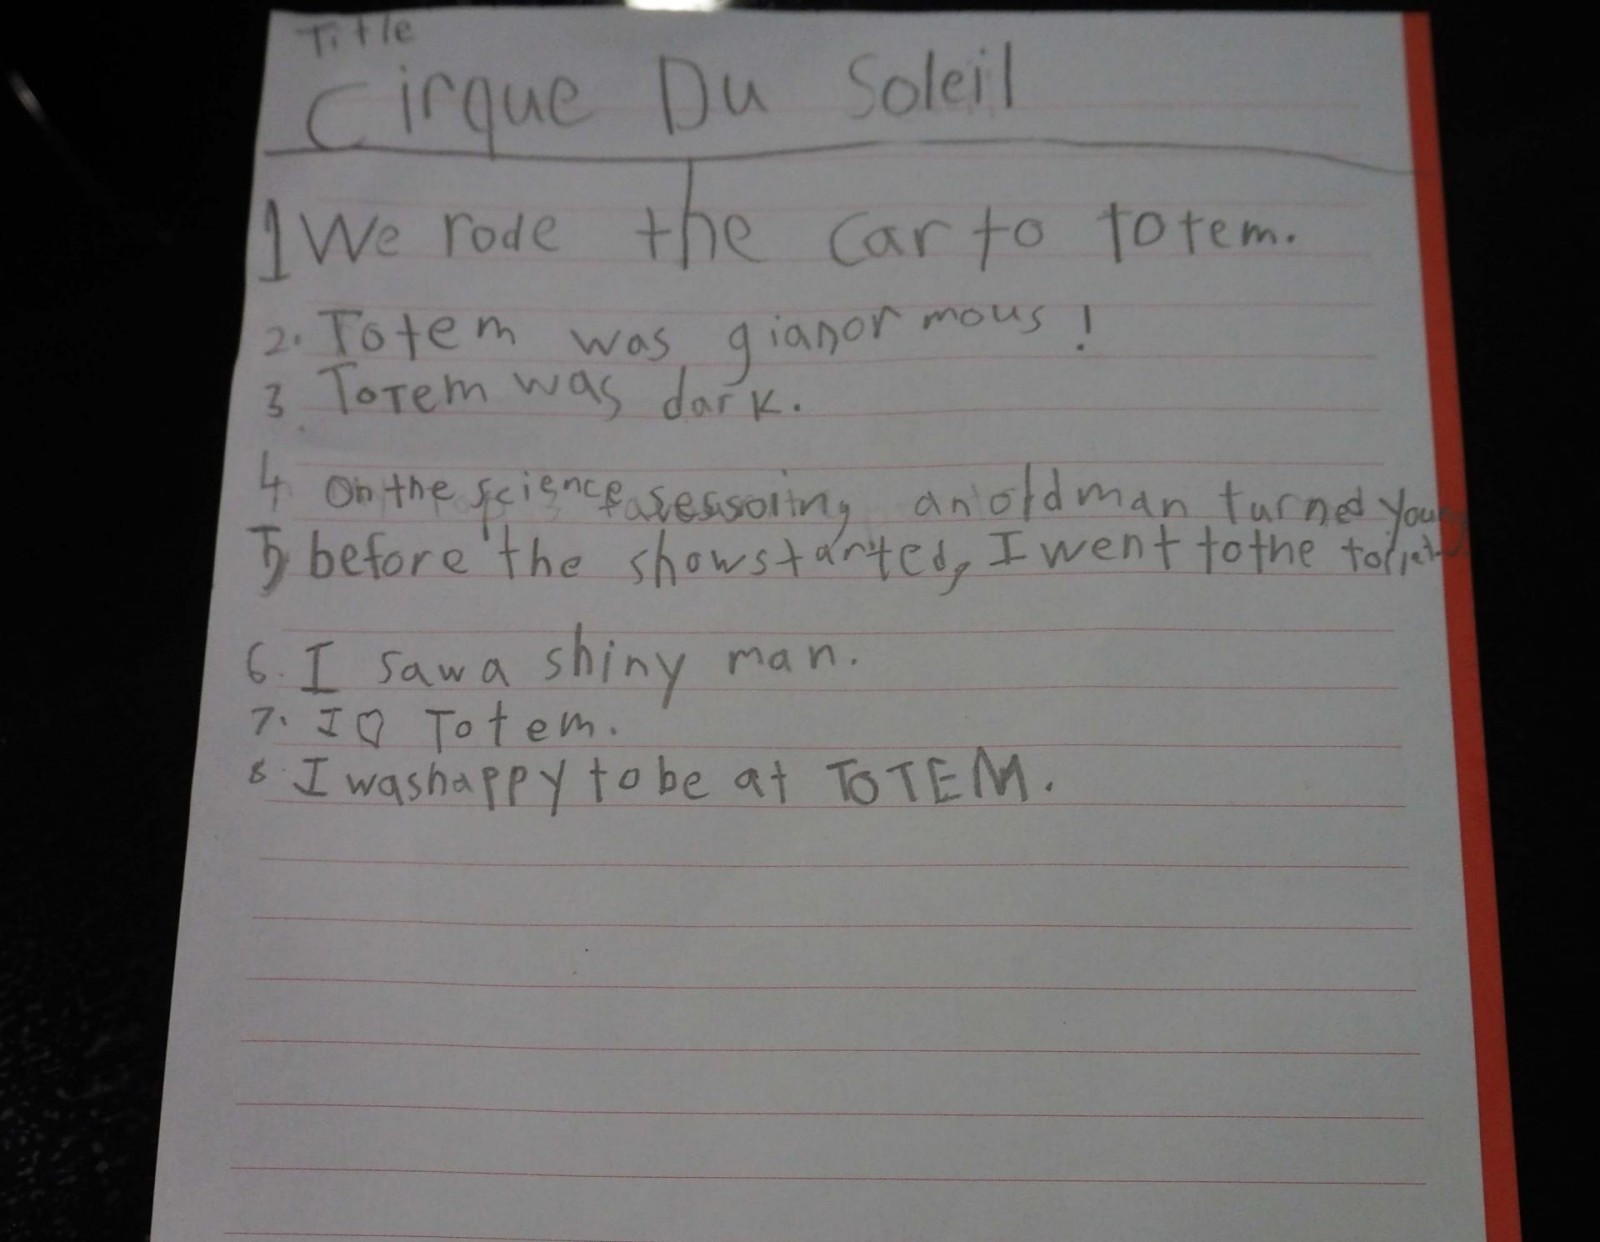 Title
Cirque Du Soleil
1 We rode the car to totem.
2. Totem was gianormous!
3 Totem was dark.
4 On the science an old man turned
5 before the show started, I went to the
6. I saw a shiny man.
7. I ♡ Totem.
8 I was happy to be at TOTEM.